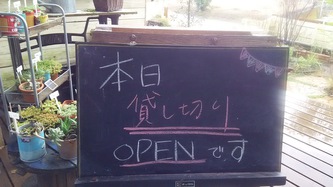 本日
貸し切り
OPENです